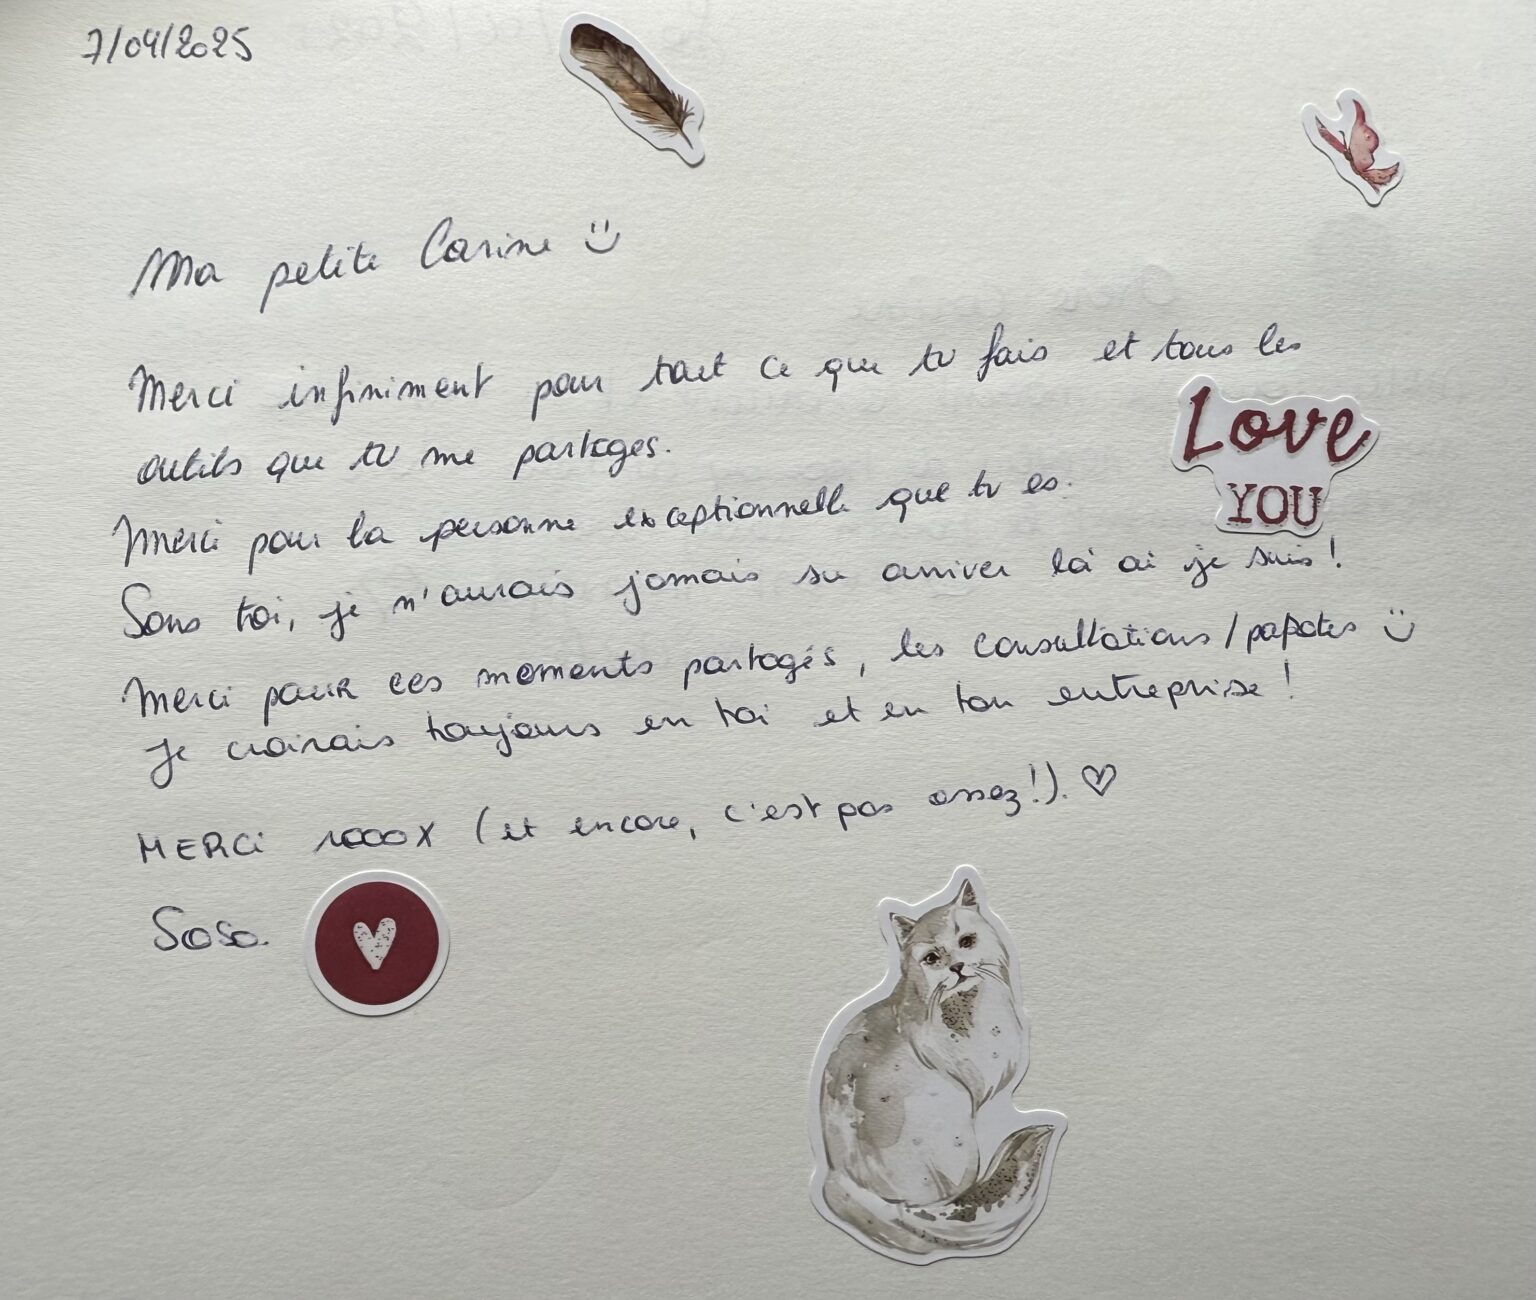 7/04/2025
Ma petite Carine :)
Merci infiniment pour tout ce que tu fais et tous les
outils que tu me partages.
Love
YOU
Merci pour la personne exceptionnelle que tu es.
Sans toi, je n'aurais jamais su arriver là où je suis !
Merci pour ces moments partagés, les consultations / papotes :)
Je croirais toujours en toi et en ton entreprise !
MERCi 1000X (et encore, c'est pas assez!). ♡
Soso.